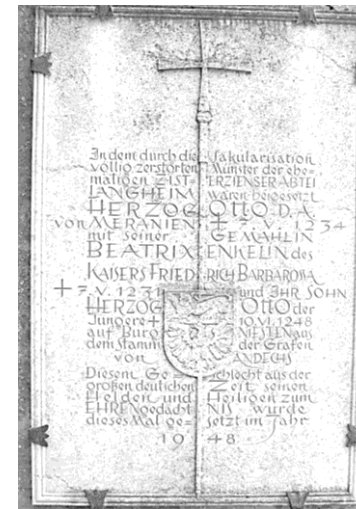 In dem durch die Säkularisation
völlig zerstörten Münster der ehe-
maligen ZISTERZIENSER ABTEI
LANGHEIM waren beigesetzt
HERZOG OTTO D. A.
von MERANIEN + 7. V. 1234
mit seiner GEMAHLIN
BEATRIX ENKELIN des
KAISERS FRIEDRICH BARBAROSSA
+ 7. V. 1231 und IHR SOHN
HERZOG OTTO der
Jüngere + 19. VI. 1248
auf Burg NIESTEN aus
dem Stamm der Grafen
von ANDECHS
Diesem Geschlecht aus der
großen deutschen Zeit seinen
Helden und Heiligen zum
EHRENgedächtNIS wurde
dieses Mal gesetzt im Jahr
1948